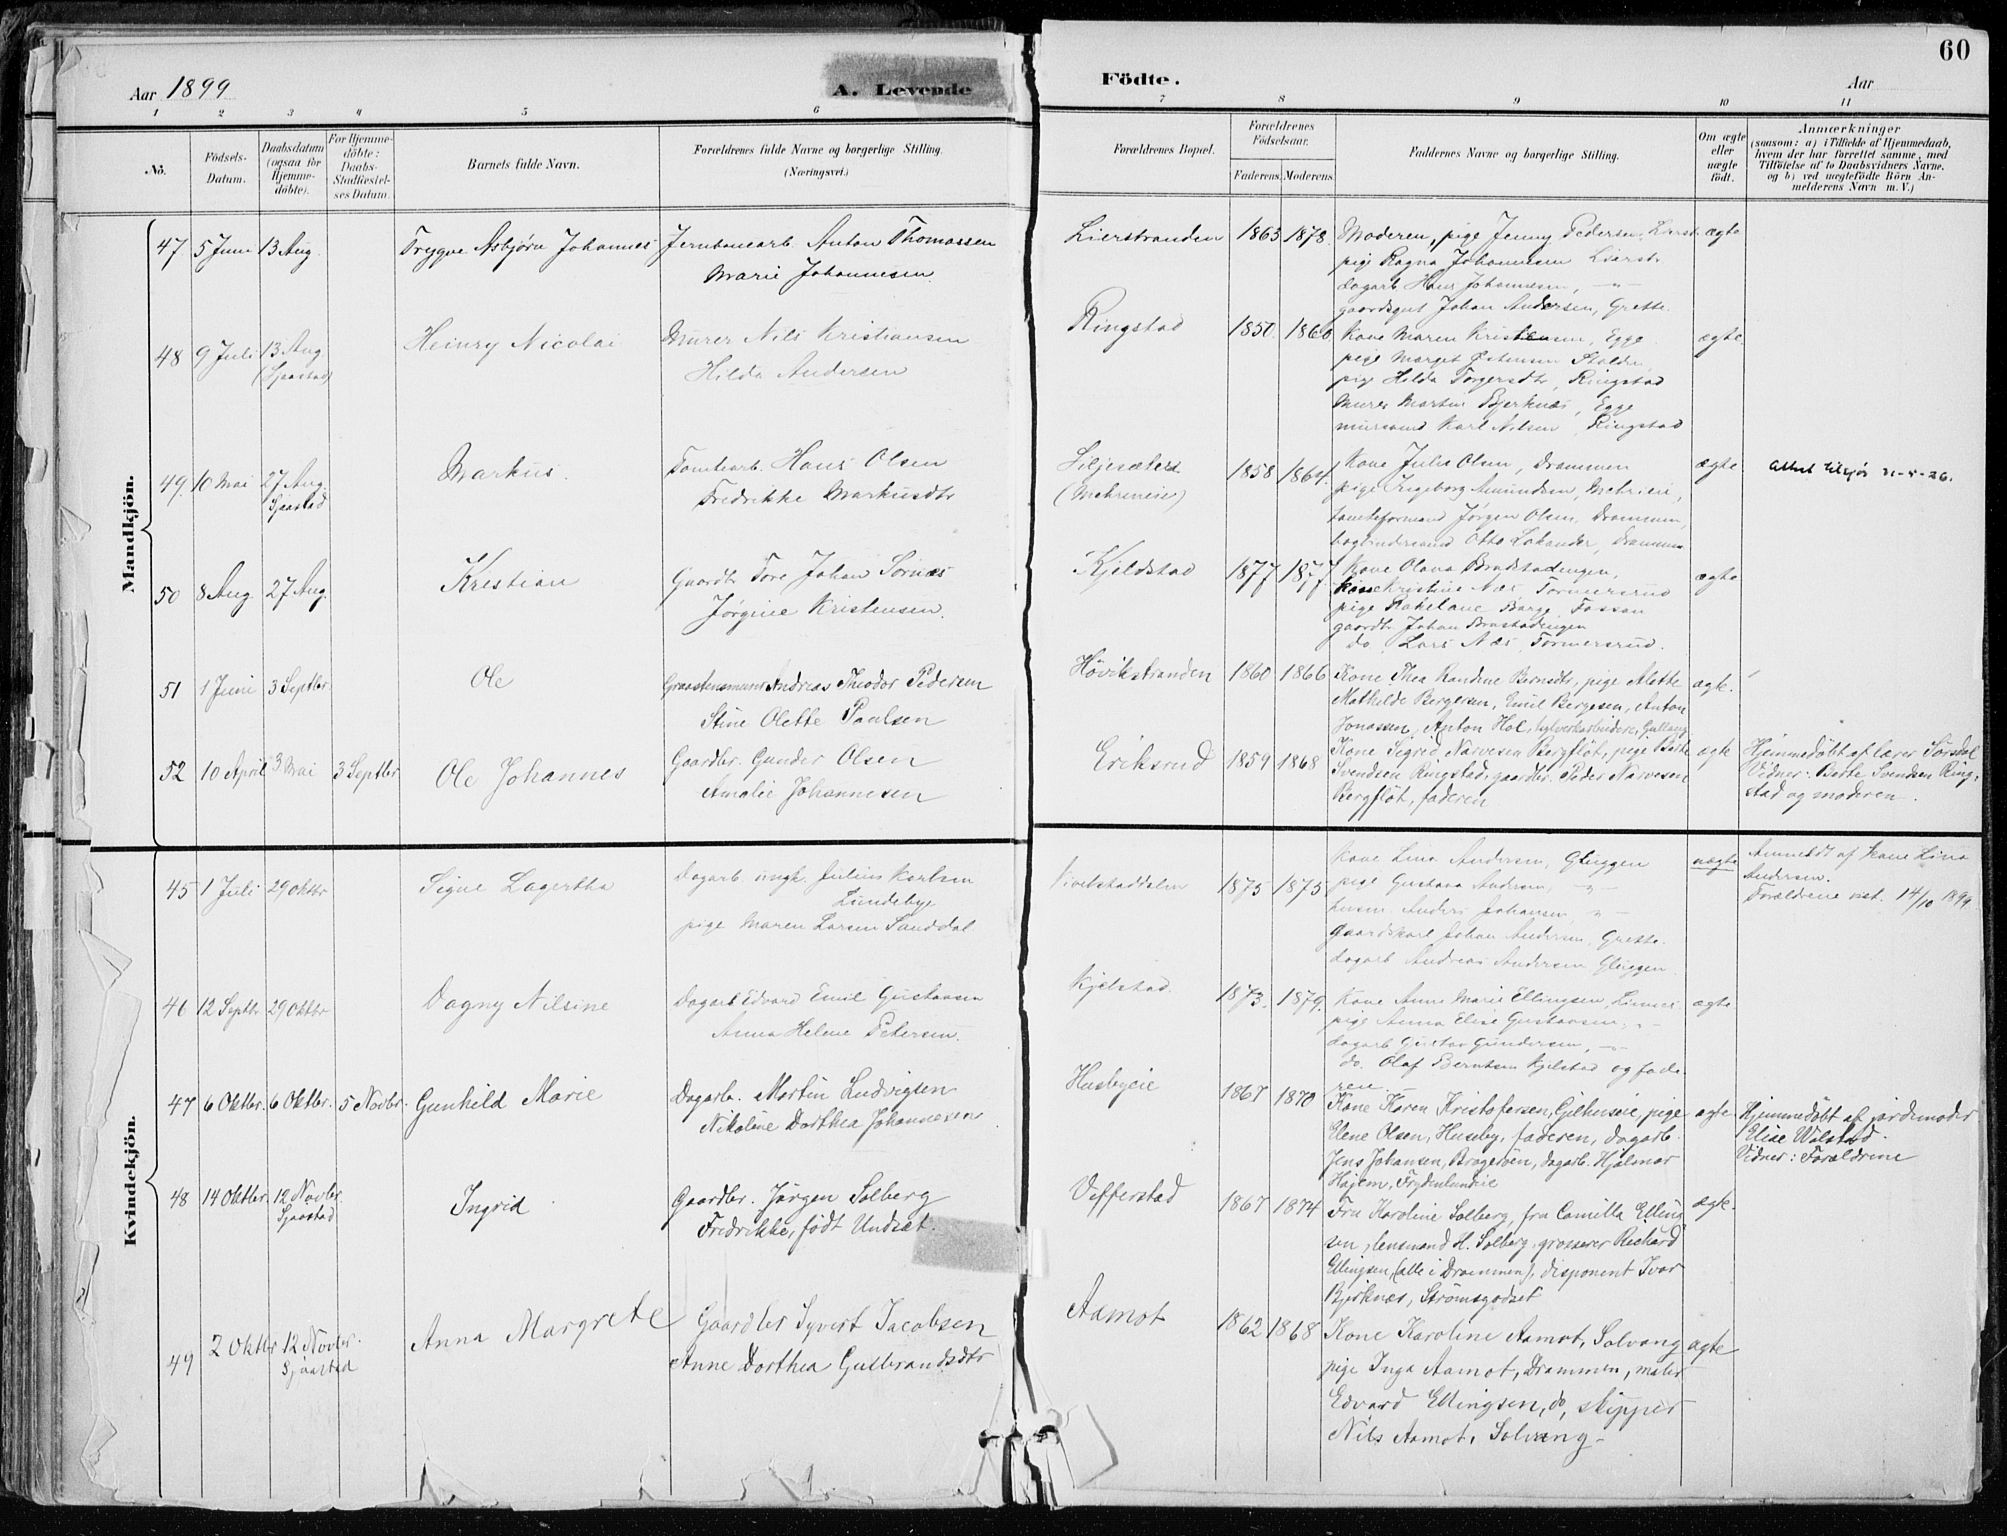 60
Aar 1899
A. Levende
Födte.
Aar
1 2 3 4 5 6 7 8 9 10 11
No.
Födsels-Datum.
Daabsdatum (ogsaa for Hjemme-döbte).
For Hjemme-döbte: Daabs-Stadfæstel-ses Datum.
Barnets fulde Navn.
Forældrenes fulde Navne og borgerlige Stilling. (Næringsvei.)
Forældrenes Bopæl.
Forældrenes Födselsaar.
Faderens. Moderens.
Faddernes Navne og borgerlige Stilling.
Om ægte eller uægte födt.
Anmærkninger
(saasom: a) i Tilfælde af Hjemmedaab,
hvem der har forrettet samme, med
Tilföielse af to Daabsvidners Navne.
og b) ved uægtefödte Börn An-
melderens Navn m. V.)
Mandkjön.
47 5 Juni 13 Aug. Trygve Asbjørn Johannes Jernbanearb. Anton Thomassen Lierstranden 1863 1878 Moderen, pige Jenny Pedersen, Lierst. ægte
Marie Johannesen. pige Ragna Johannesen Lierstr.
dagarb. Hans Johannesen, -"-
gaardsgut Johan Andersen, Grette.
48 9 Juli 13 Aug. (Sjaastad) Heinry Nicolai Murer Nils Kristiansen Ringstad 1850 1860 Kone Maren Kristensen, Egge. ægte
Hilda Andersen pige Marget Østensen
pige Hilda Torgersdtr, Ringstad
Murer Martin Bjerknæs, Egge
mursvend Karl Nilsen, Ringstad
49. 10 Mai 27 Aug. Sjaastad Markus. Tomtearb. Hans Olsen Liljesæter (Mehreneie) 1858 1864 Kone Julie Olsen, Drammen ægte
Fredrikke Markusdtr pige Ingeborg Amundsen,
tomteformand Jørgen Olsen, Drammen,
bogbindersvend Otto Lokander, Drammen
50 8 Aug. 27 Aug. Kristian Gaardbr. Tore Johan Sørnæs Kjeldstad 1877 1877 Kone Olava Bradstadengen, ægte
Jørgine Kristensen. kone Kristine Næs, Tormersrud
pige Rakelane Borge, Fossan
gaardbr. Johan Brastadengen
do. Lars Næs, Tormersrud.
51 1 Juni 3 Septbr. Ole Andreas Theodor Pedersen Høvikstranden 1860 1866 Kone Thea Randine Berntsdtr, pige Alette ægte.
Stine Olette Paulsen Mathilde Bergersen, Emil Bergesen, Anton
Jonassen, Anton Hol,
52 10 April 3 Mai 3 Septbr Ole Johannes Gaardbr. Gunder Olsen Eriksrud 1859 1868 Kone Sigrid Narvesen Bergfløt, pige Berte ægte Hjemmedöbt af lærer Sørsdal
Amalie Johannesen Svendsen Ringstad, gaardbr. Peder Narvesen Vidner: Berte Svendsen Ring-
Bergfløt, faderen. stad og moderen.
Kvindekjön.
45 1 Juli 29 Oktbr Signe Lagertha Dagarb. ungk. Julius Karlsen Lundebye 1875 1875 Kone Lina Andersen, Gluggen uægte Anmeldt af kone Lina
pige Maren Larsen Sanddal pige Gustava Andersen, -"- Andersen.
Anders Johansen -"- Forældrene vist. 14/10 1899
gaardskarl Johan Andersen, Grette.
dagarb. Andreas Andersen Gluggen.
46 12 Septbr 29 Oktbr Dagny Nilsine Dagarb. Edvard Emil Gustavsen Kjelstad. 1873. 1879. Kone Anne Marie Ellingsen, Linnes ægte
Anna Helene Petersen. pige Anna Elise Gustavsen, -"-
dagarb. Gustav Gundersen, -"-
do. Olaf Berntsen Kjelstad og fade-
ren.
47 6 Oktbr. 6 Oktbr. 5 Novbr. Gunhild Marie Dagarb. Martin Ludvigsen Husbyeie 1867 1870 Kone Karen Kristofersen, Gilhuseie, pige ægte Hjemmedöbt af jordemoder
Nikoline Dorthea Johannesen Elene Olsen, Huseby, faderen, dagarb. Elise Wilstad.
Jens Johansen, Brageröen, dagarb. Hjalmar Vidner: Forældrene
Hajem, Frydenlundeie
48 14 Oktbr. 12 Novbr. Sjaastad Ingrid Gaardbr. Jörgen Solberg Vefferstad 1867 1874 Fru Karoline Solberg, fru Camilla Elling- ægte.
Fredrikke, født Undset. sen, lensmand H. Solberg, grosserer Richard
Ellingsen, (alle i Drammen), disponent Ivar
Bjerknæs, Strømsgodset
49 2 Oktbr 12 Novbr. Sjaastad Anna Margrete Gaardbr Syvert Jacobsen Aamot 1862 1868 Kone Karoline Aamot, Solvang ægte
Anne Dorthea Gulbrandsdtr pige Inga Aamot, Drammen, maler
Edvard Ellingsen, do, skipper
Nils Aamot, Solvang-